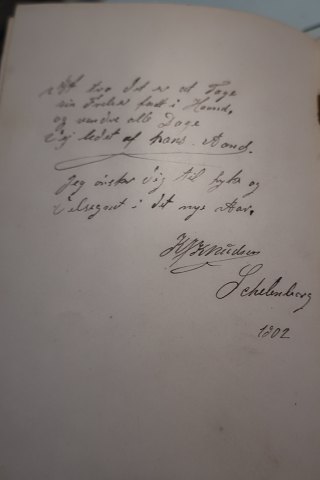 At tro det er at Tage
sin Frelser fast i Haand,
og vandre alle Dage
Vej ledet af hans Aand.
Jeg ønsker Dig til lykke og
Velsignet i det nye Aar.
Knudsen
Schelenborg
1802